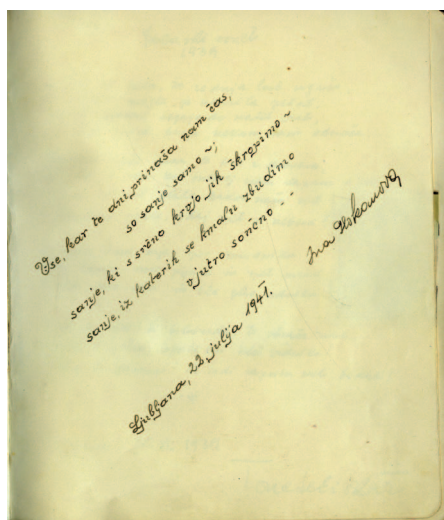 Vse, kar te dni prinaša nam čas,
so sanje samo ~;
sanje, ki s srčno krvjo jih škropimo ~
sanje, iz katerih se kmalu zbudimo
v jutro sončno - -
Ljubljana, 22. julija 1941.
Iva